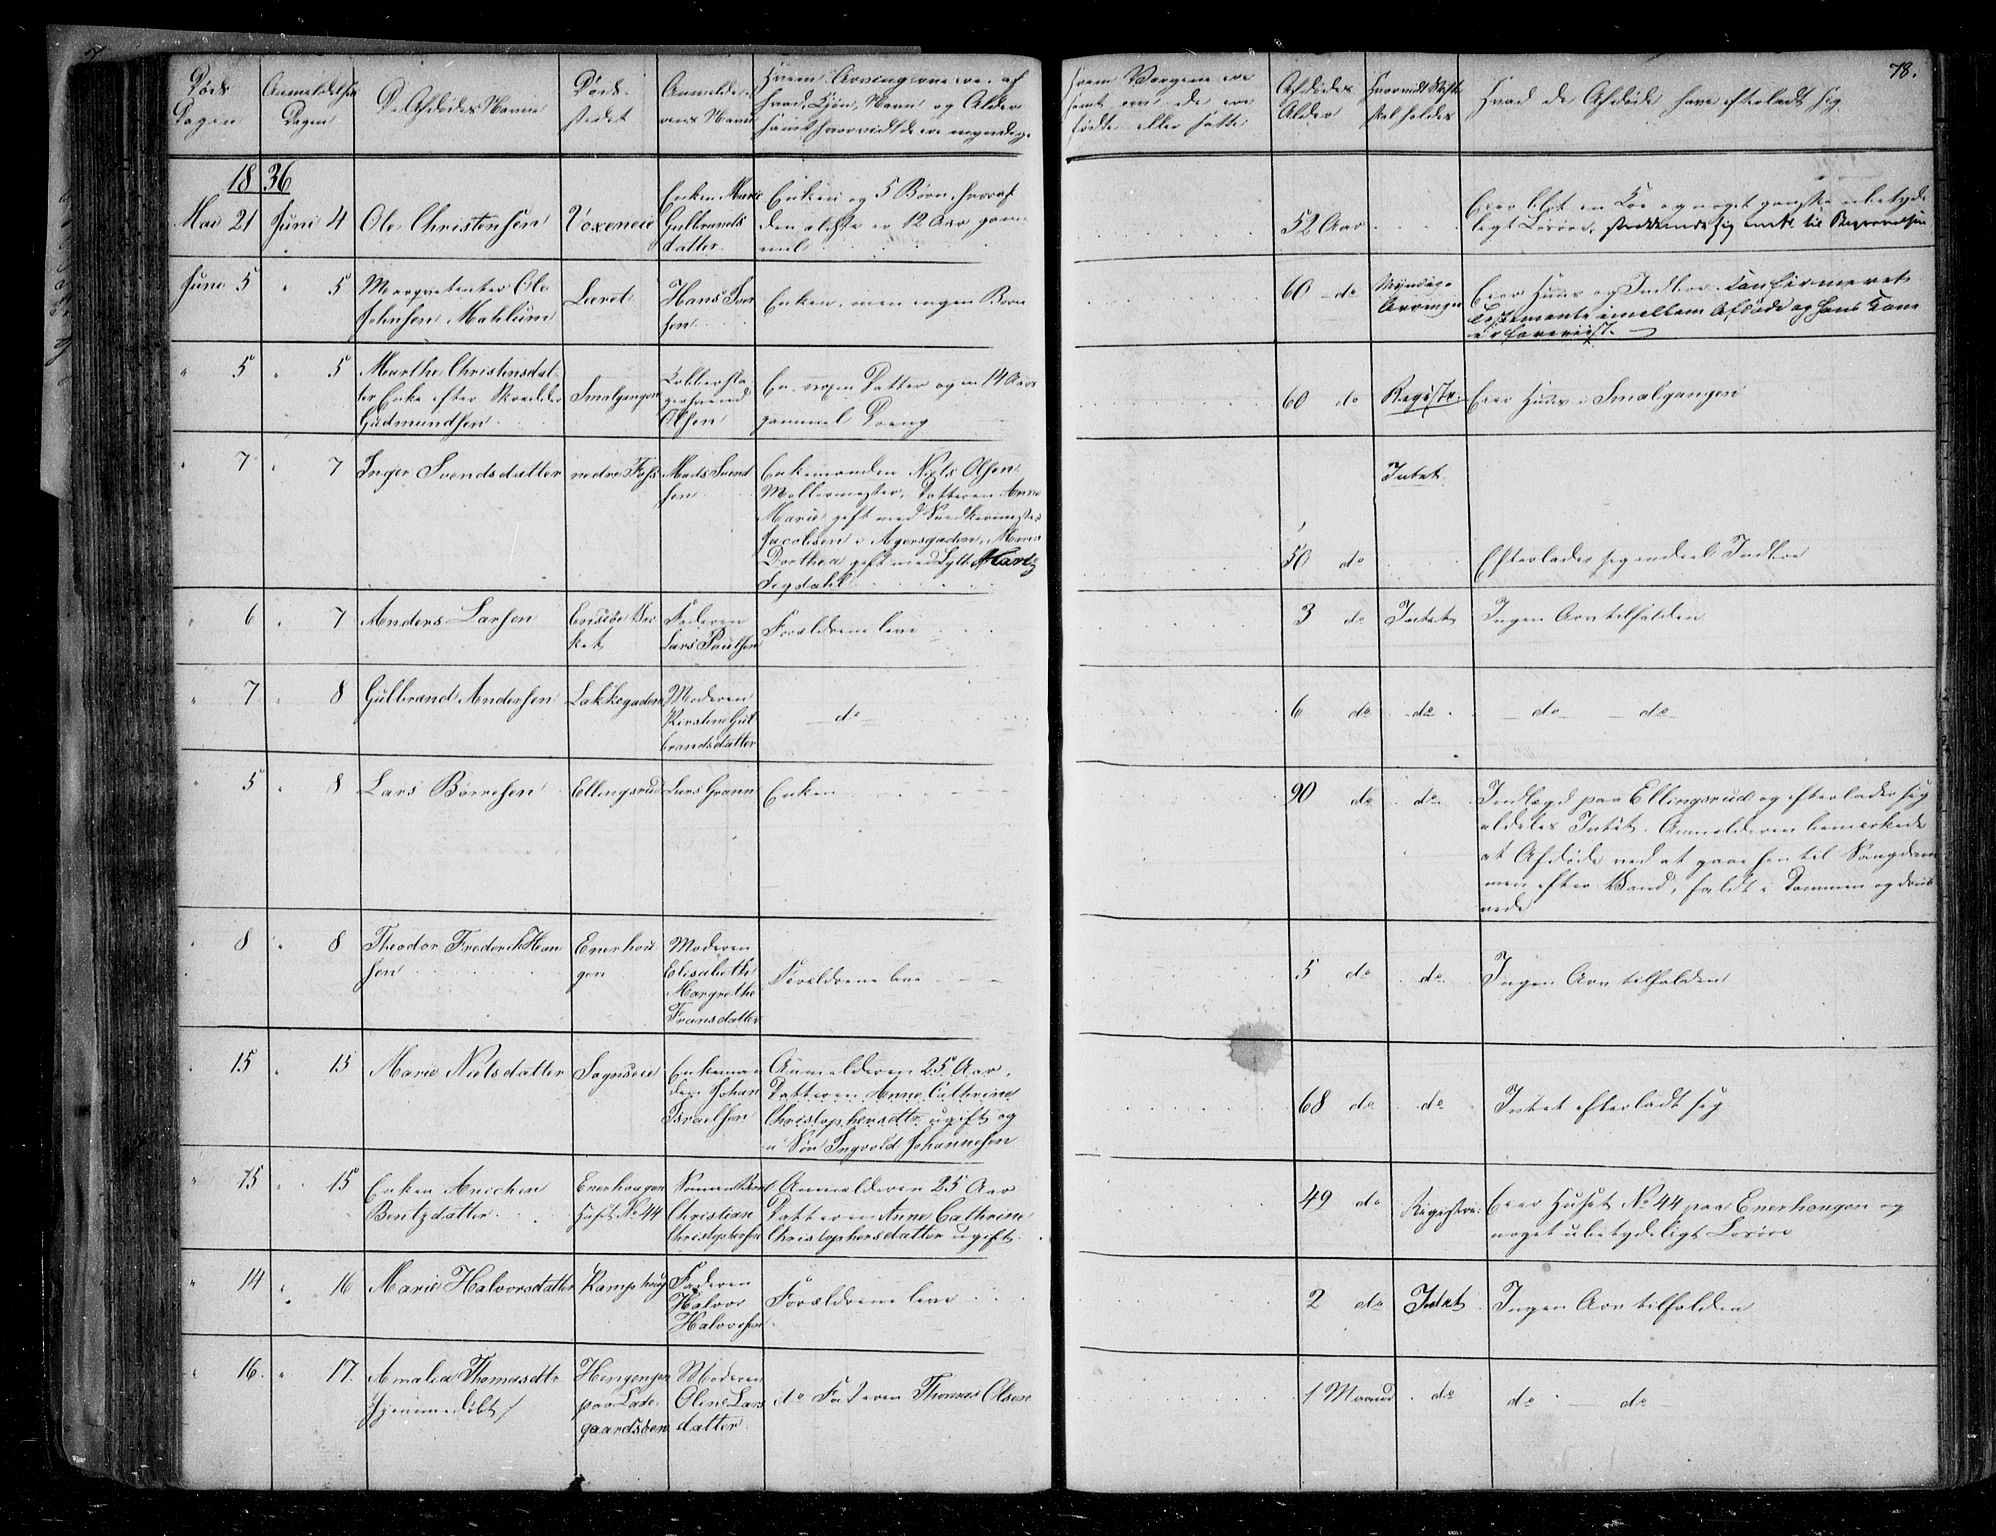 78.
Døds
Dagen
Anmeldelses
Dagen
De Afdødes Navne
Døds-
stedet
Anmelde-
rens Navn
Hvem Arvingerne ere, af
hvad Kjøn, Navn og Alder
samt hvorvidt de ere myndige
hvem Børgene ere
samt om de ere
fødte eller satte
Afdødes
Alder
Hvorvidt Skifte
skal holdes
Hvad de Afdøde have efterladt sig
1836
Mai 21 Juni 4 Ole Christensen
Voxeneie
Enken Marie
Gulbrands
datter
Enken og 5 Børn, hvoraf
den ældste er 12 Aar gam-
mel
52 Aar
Eier blot en Koe og noget ganske ubetyde
ligt Løsøre,
Juni 5 " 5 Marqvetenter Ole
Johnsen Mahlum
Hans Iver
sen
Enken, men ingen Børn
60 do
Myndige
Arvinger
Eier Huus og Indboe. Confirmeret
Testamente imellem Afdøde og hans Kone
er foreviist.
" 5 " 5 Marthe Christensdat-
ter Enke efter Skrædder
Gudmundsen
Smalgangen
Olsen
En voxen Datter og en 14 Aar
gammel Dreng
60 do
Registr.
Eier Huus i Smalgangen
" 7 " 7 Inger Svendsdatter
nedre Foss
Mads Svend
sen
Enkemanden Niels Olsen
Møllermester, Datteren Anne
Marie gift med Snedkermester
Jacobsen i Agersgaden, Maren
Dorthea gift med
Sigdahl
Intet
50 do
Efterlader sig endeel Indboe
" 6 " 7 Anders Larsen
Faderen
Lars Paulsen
Forældrene leve
3 do Intet
Ingen Arv tilfalden
" 7 " 8 Gulbrand Andersen
Lakkegaden
Moderen
Kirstine Gul
brandsdatter
do
6 do do do do
" 5 " 8 Lars Børresen
Ellingsrud
Lars Grønn
Enken
90 do do
Indlagd paa Ellingsrud og efterlader sig
aldeles Intet. Anmelderen bemærkede
at Afdøde ved at gaae hen til Vangdam
men efter Vand, faldt i Dammen og druk
nede
" 8 " 8 Theodor Frederik Han
sen
Enerhou
gen
Moderen
Elisabeth
Margrethe
Fransdatter
Forældrene leve
5 do do
Ingen Arv tilfalden
" 15 " 15 Marie Nielsdatter
Sognseie
Enkeman
den Johan
Israelsen
Anmelderen 25 Aar,
Datteren Anne Cathrine
Christophersdtr ugift og
en Søn Ingvold Johannesen
68 do do
Intet efterladt sig
" 15 " 15 Enken Anichen
Bentzdatter
Enerhougen
Huset No 44
Sønnen Bernt
Christian
Christophersen
Anmelderen 25 Aar
Datteren Anne Cathrine
Christophersdatter ugift
49 do
Registre:
Eier Huset No 44 paa Enerhougen og
noget ubetydeligt Løsøre
" 14 " 16 Marie Halvorsdatter
Kamphoug
Faderen
Halvor
Halvorsen
Forældrene leve
2 do Intet
Ingen Arv tilfalden
" 16. " 17. Amalia Thomasdtr
hjemmedøbt /
paa Lade-
gaardsøen
Moderen
Oline Lars
datter
do Faderen Thomas Olsen
1 Maaned do
do do